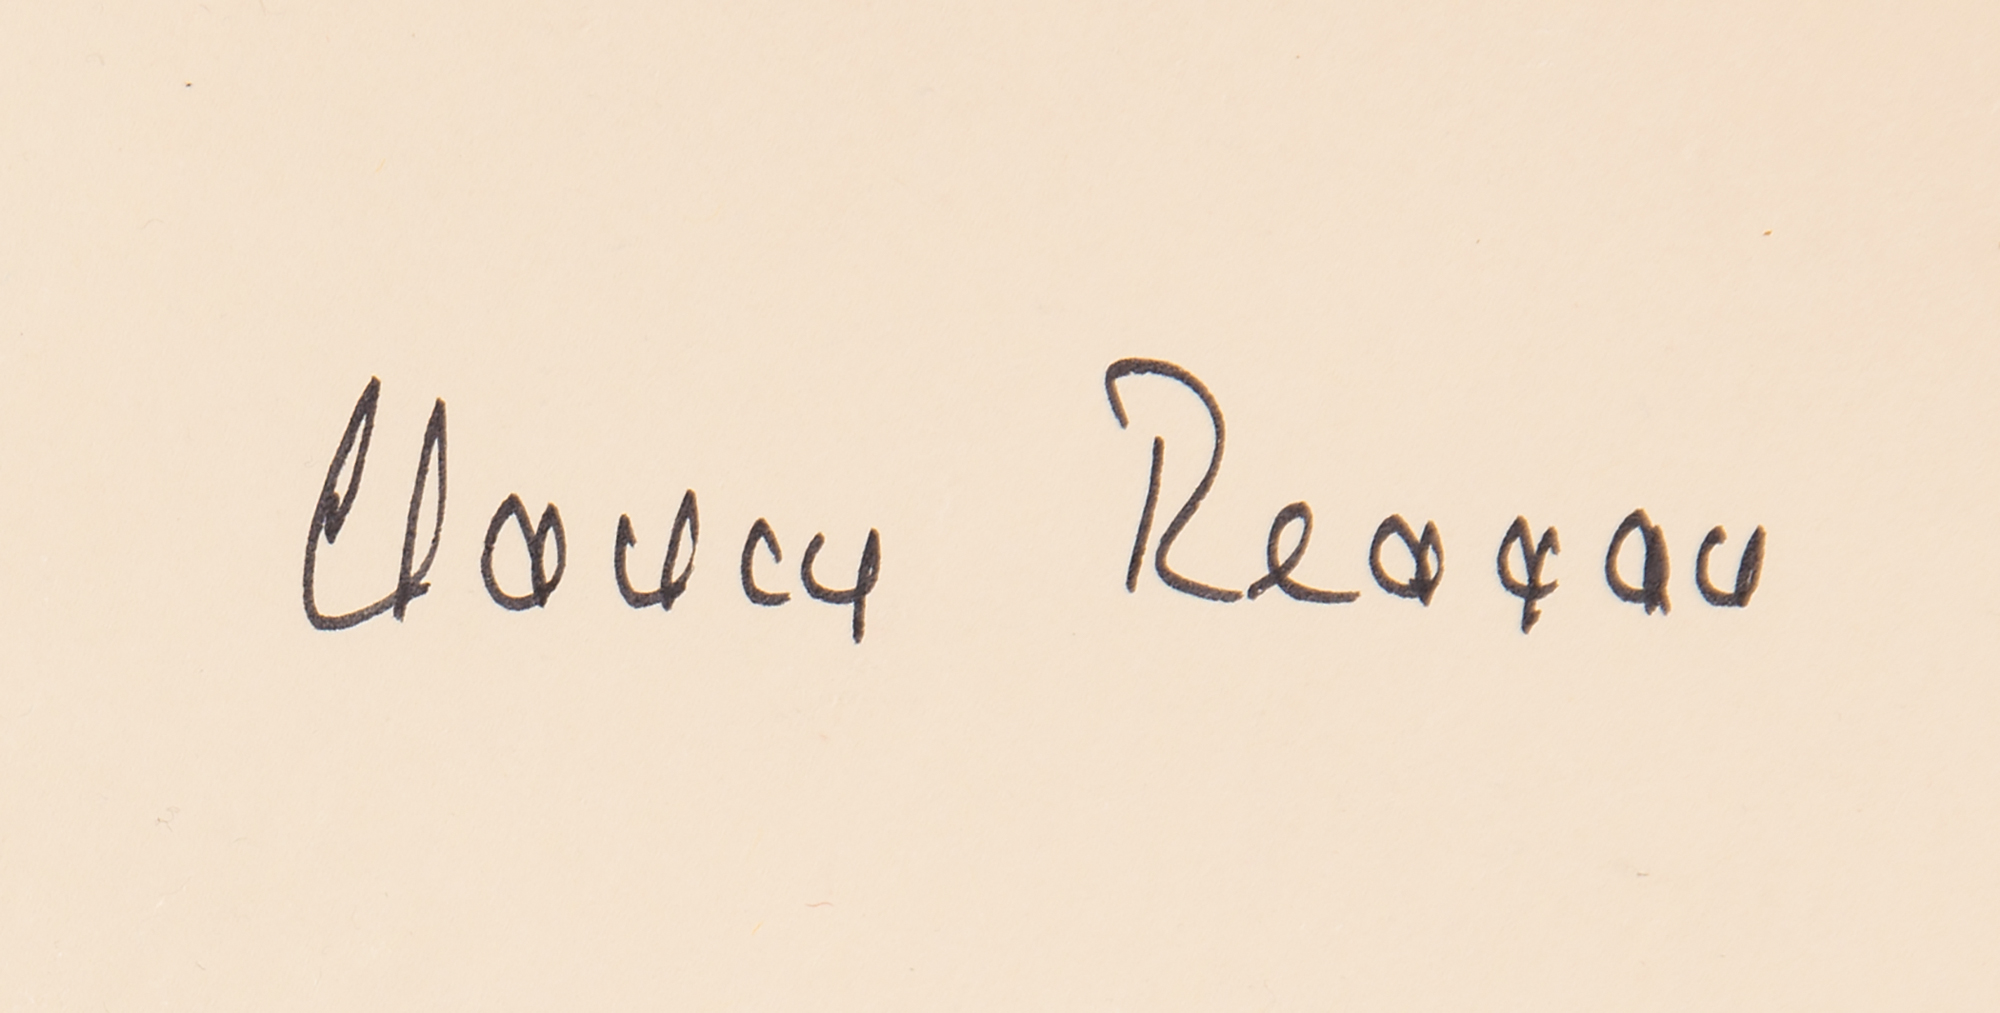 Nancy Reagan